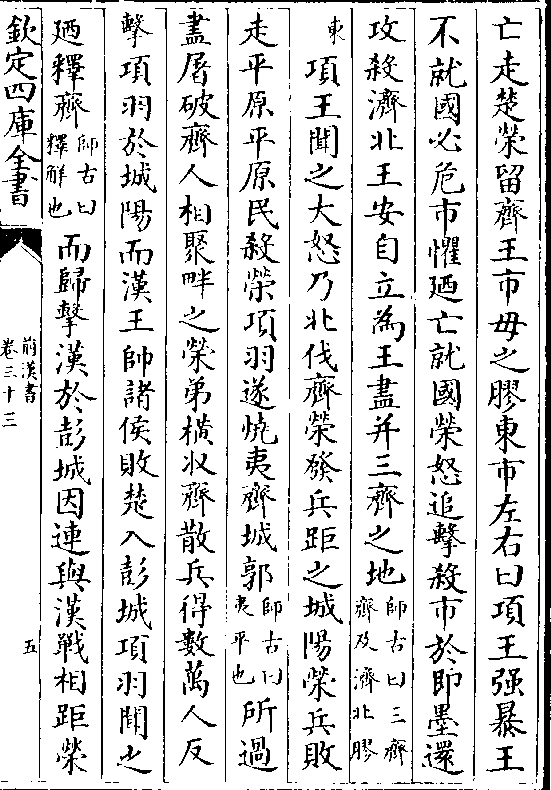 亡走楚榮留齊王市毋之膠東市左右曰項王强暴王
不就國必危市懼廼亡就國榮怒追擊殺市於即墨還
攻殺濟北王安自立為王盡并三齊之地師古曰三齊齊及濟北膠
東項王聞之大怒乃北伐齊榮發兵距之城陽榮兵敗
走平原平原民殺榮項羽遂燒夷齊城郭師古曰夷平也所過
盡屠破齊人相聚畔之榮弟橫收齊散兵得數萬人反
擊項羽於城陽而漢王帥諸侯敗楚入彭城項羽聞之
廼釋齊師古曰釋解也而歸擊漢於彭城因連與漢戰相距榮
欽定四庫全書
前漢書
卷三十三
五